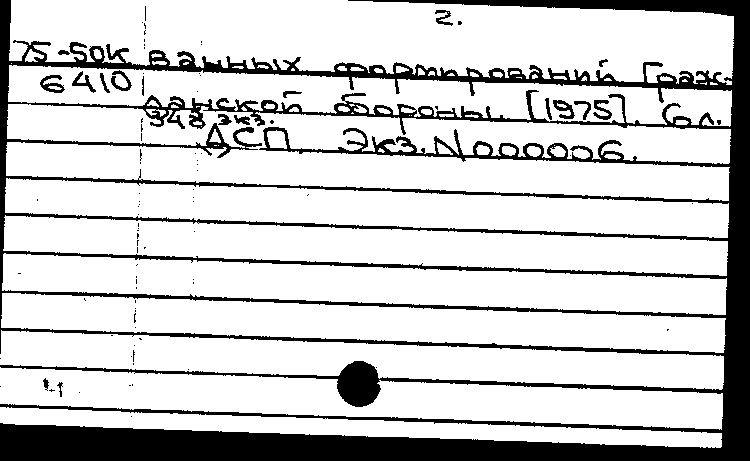 2.
75-50к ванных формирований Граж-
6410
данской обороны. [1975]. 6 л.
348 экз.
ДСП Экз. N000006.
4